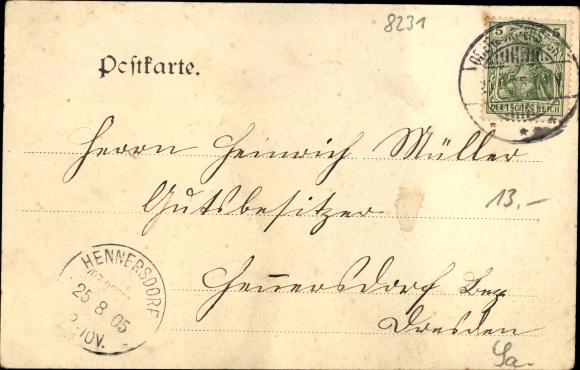 8231
Postkarte.
5 5
DEUTSCHES REICH
Herrn Heinrich Müller
Gutsbesitzer
13.-
Hennersdorf Bez.
Dresden
Sa.
HENNERSDORF
25 8 05